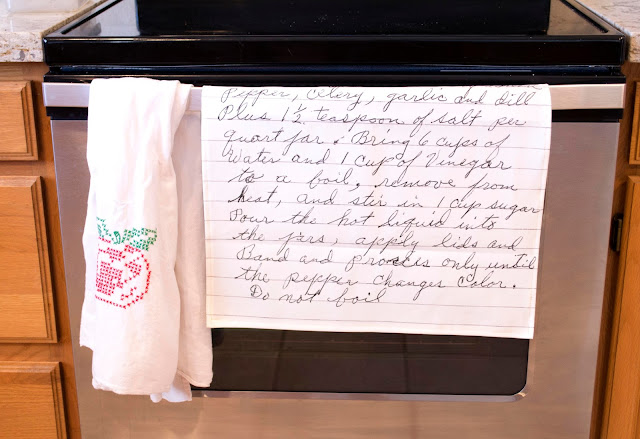 Pepper, Celery, garlic and dill
Plus 1 1/2 teaspoon of salt per
quart jar. Bring 6 cups of
Water and 1 Cup of Vinegar
to a boil, remove from
heat, and stir in 1 cup sugar
Pour the hot liquid into
the jars, apply lids and
Band and process only until
the pepper changes Color.
Do not boil